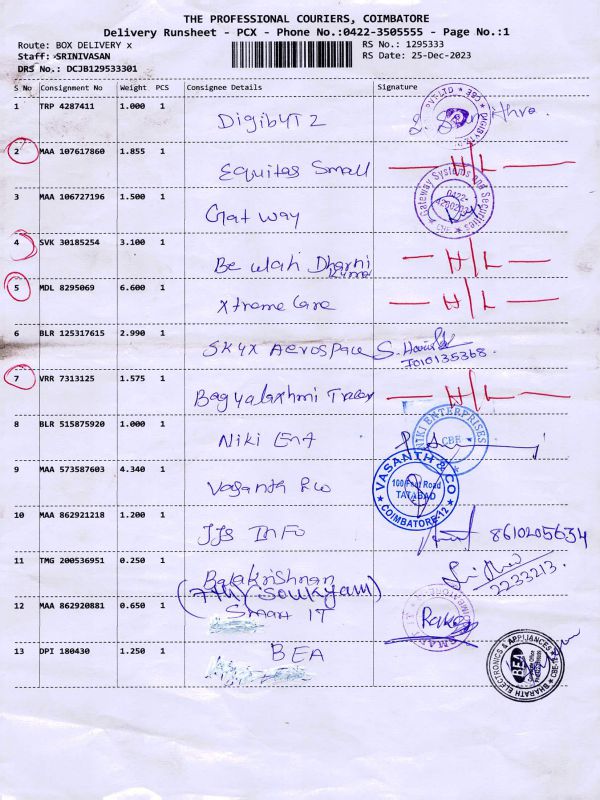 THE PROFESSIONAL COURIERS, COIMBATORE
Delivery Runsheet - PCX - Phone No.:0422-3505555 - Page No.:1
Route: BOX DELIVERY x RS No.: 1295333
Staff: SRINIVASAN RS Date: 25-Dec-2023
DRS No.: DCJB129533301
S No Consignment No Weight PCS Consignee Details Signature
1 TRP 4287411 1.000 1 DigibYT 2
2 MAA 107617860 1.855 1 Equitas Small H/L
3 MAA 106727196 1.500 1 Gat way
Gateway Systems and Securities
0422-
CBE
4 SVK 30185254 3.100 1 Be ulah Dharni H/L
5 MDL 8295069 6.600 1 Xtreme Care H/L
6 BLR 125317615 2.990 1 SKYX Aerospace S.
7010135368.
7 VRR 7313125 1.575 1 Bagyalaxhmi H/L
8 BLR 515875920 1.000 1 Niki Ent
NIKI ENTERPRISES
CBE
9 MAA 573587603 4.340 1 Vasanth &co
VASANTH & CO
100 Feet Road
TATABAD
COIMBATORE-12
10 MAA 862921218 1.200 1 JJS INFO 8610205634
11 TMG 200536951 0.250 1 Balakrishnan
2233213.
(7th) (Soukyam)
12 MAA 862920881 0.650 1 Smart IT
13 DPI 180430 1.250 1 BEA
BHARATH ELECTRONICS & APPLIANCES
BEA